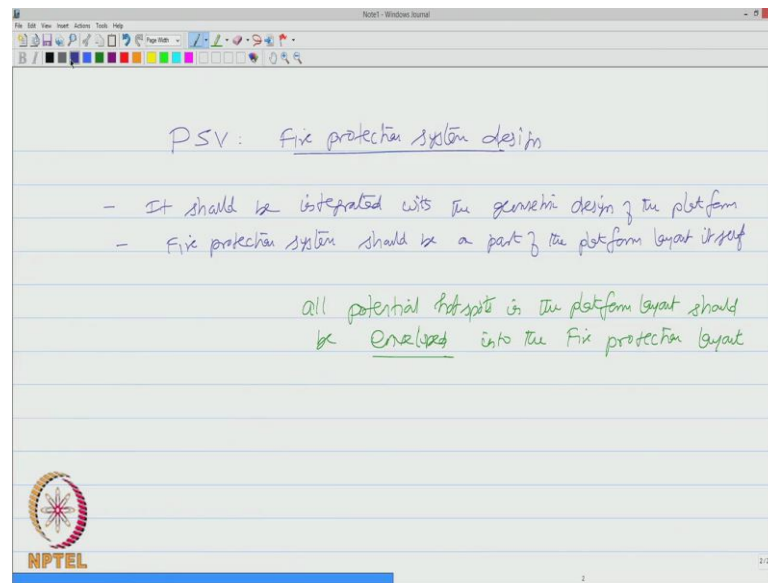 Note1 - Windows Journal
File Edit View Insert Actions Tools Help
Page Width
B I
PSV: Fire protection system design
- It should be integrated with the geometric design of the platform
- Fire protection system should be a part of the platform layout itself
all potential hotspots in the platform layout should
be enveloped into the Fire protection layout
NPTEL
2
2/2